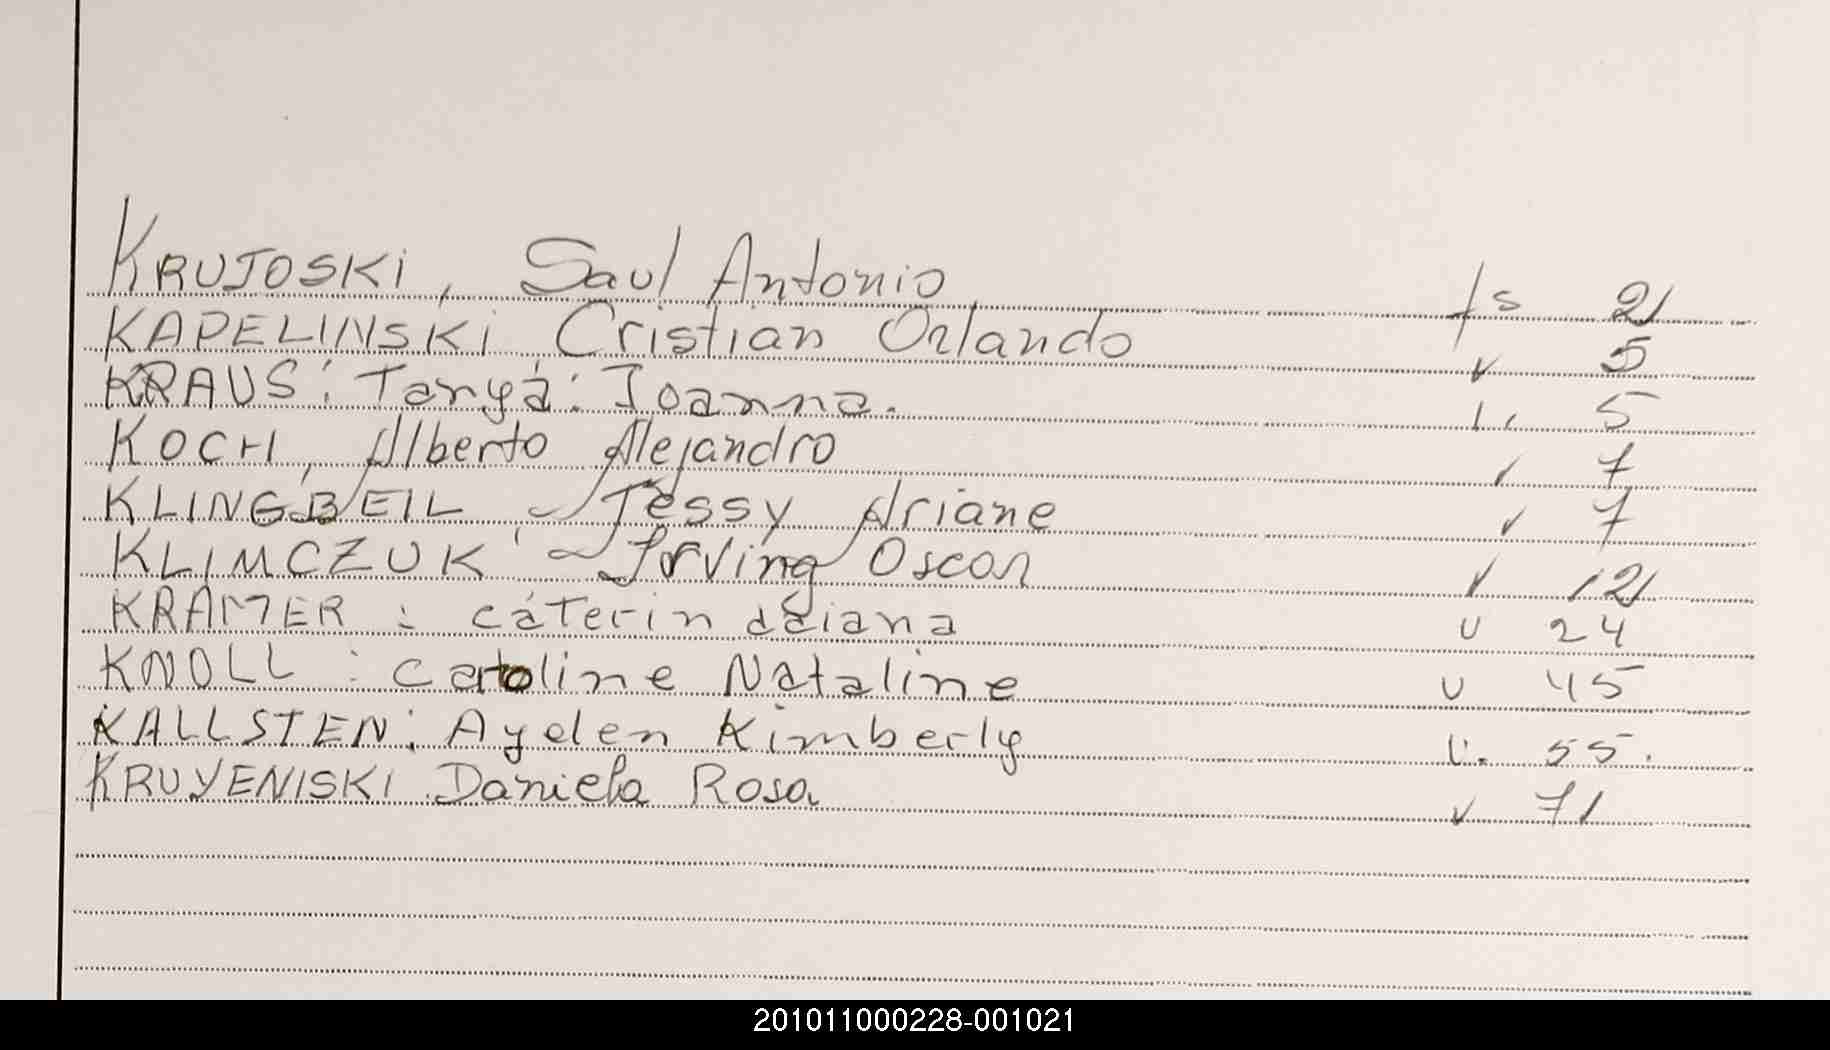 KRUJOSKI, Saul Antonio fs 2
KAPELINSKI Cristian Orlando v 5
KRAUS: Tanya: Joanna. " 5
KOCH, Alberto Alejandro ' 7
KLINGBEIL, Jessy Ariane v 7
KLIMCZUK, Irving Oscar v 12
KRAMER: caterin daiana u 24
KNOLL: Caroline Nataline u 45
KALLSTEN: Ayelen Kimberly u. 55.
KRUYENISKI Daniela Rosa v 71
201011000228-001021